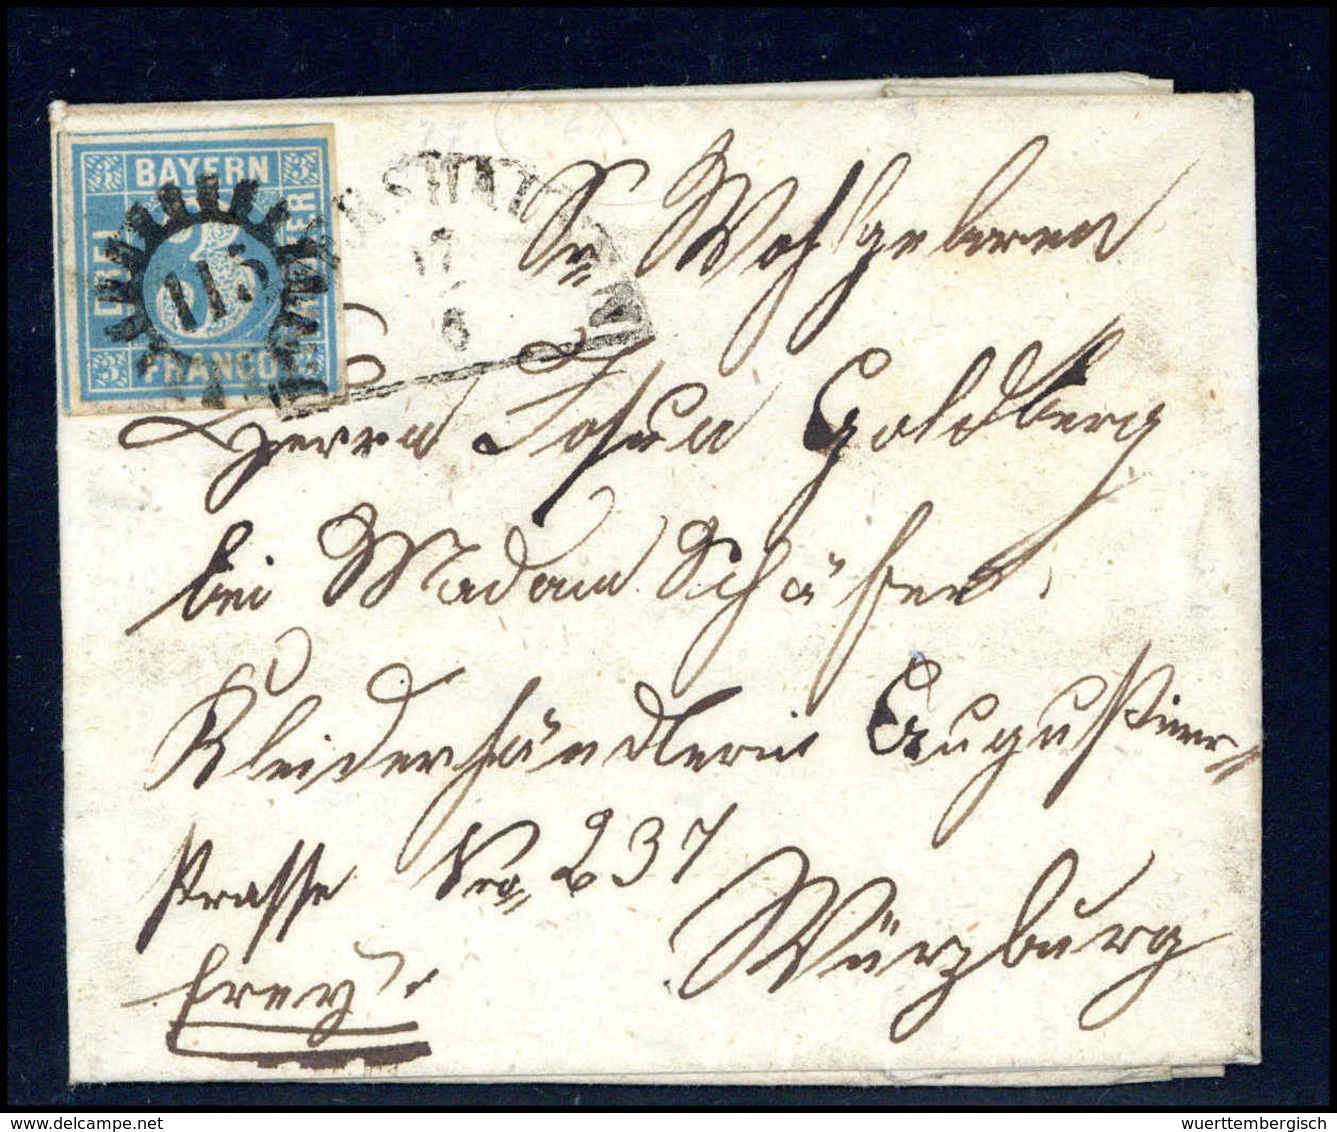 BAYERN
DREI
KREUZER
FRANCO
3 3 3 3
3
115
17
6
Sr Wohlgeboren
Herrn Goldberg
bei Madam Schäfer
Kleiderhändlerin Augustiner-
strasse Nro 237
Würzburg
frey.
wuerttembergisch